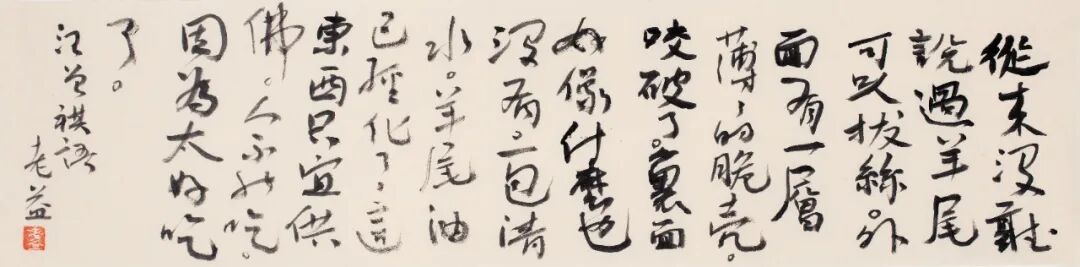 從来没聽
說過羊尾
可以拔絲。外
面有一層
薄〻的脆壳。
咬破了。裏面
好像什麽也
没有。一包清
水。羊尾油
已經化了。這
東西只宜供
佛。人不能吃。
因為太好吃
了。
汪曾祺語
老益